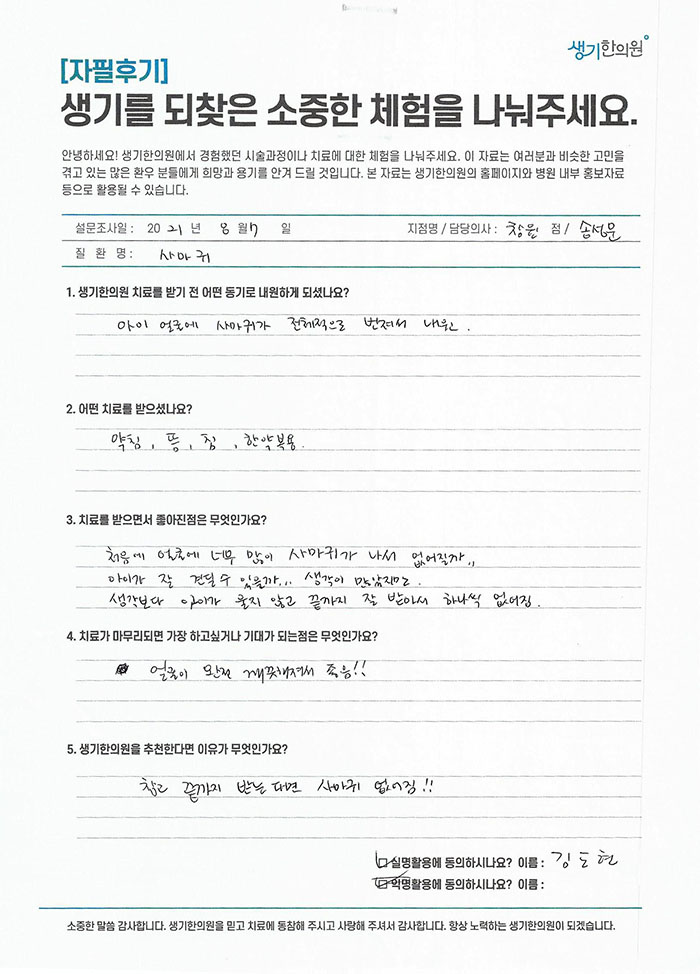 생기한의원
[자필후기]
생기를 되찾은 소중한 체험을 나눠주세요.
안녕하세요! 생기한의원에서 경험했던 시술과정이나 치료에 대한 체험을 나눠주세요. 이 자료는 여러분과 비슷한 고민을
겪고 있는 많은 환우 분들에게 희망과 용기를 안겨 드릴 것입니다. 본 자료는 생기한의원의 홈페이지와 병원 내부 홍보자료
등으로 활용될 수 있습니다.
설문조사일 : 20 21 년 8 월 7 일 지점명 / 담당의사 : 창원 점 / 송성문
질 환 명 : 사마귀
1. 생기한의원 치료를 받기 전 어떤 동기로 내원하게 되셨나요?
아이 얼굴에 사마귀가 전체적으로 번져서 내원.
2. 어떤 치료를 받으셨나요?
약침, 뜸, 침, 한약복용.
3. 치료를 받으면서 좋아진점은 무엇인가요?
처음에 얼굴에 너무 많이 사마귀가 나서 없어질까..
아이가 잘 견딜 수 있을까... 생각이 많았지만.
생각보다 아이가 울지 않고 끝까지 잘 받아서 하나씩 없어짐.
4. 치료가 마무리되면 가장 하고싶거나 기대가 되는점은 무엇인가요?
얼굴이 완전 깨끗해져서 좋음!!
5. 생기한의원을 추천한다면 이유가 무엇인가요?
참고 끝까지 받는다면 사마귀 없어짐!!
실명활용에 동의하시나요? 이름 : 김도현
익명활용에 동의하시나요? 이름 :
소중한 말씀 감사합니다. 생기한의원을 믿고 치료에 동참해 주시고 사랑해 주셔서 감사합니다. 항상 노력하는 생기한의원이 되겠습니다.